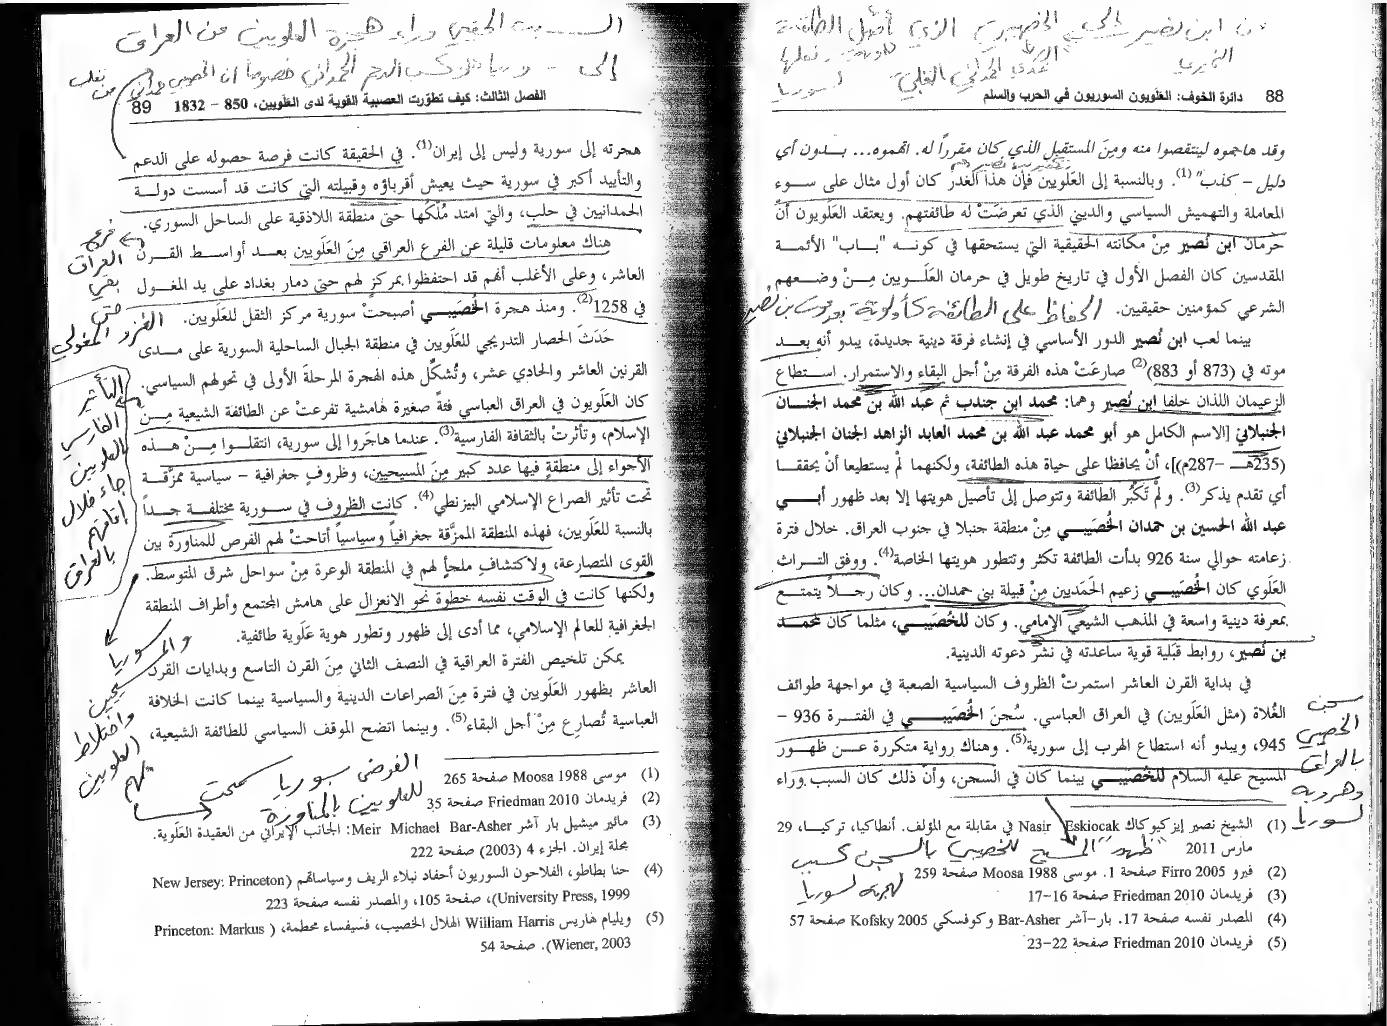 88 دائرة الخوف: العَلَويون السوريون في الحرب والسلم
وقد هاجموه لينتقصوا منه ومِنَ المستقبل الذي كان مقرراً له. اتهموه... بــدون أي
دليل – كذب" (1). وبالنسبة إلى العَلَويين فإنَّ هذا الغدرُ كان أول مثال على ســوء
المعاملة والتهميش السياسي والديني الذي تعرضَتْ له طائفتهم. ويعتقد العَلَويون أنَّ
حرمان ابن نُصير مِنْ مكانته الحقيقية التي يستحقها في كونــه "بــاب" الأئمــة
المقدسين كان الفصل الأول في تاريخ طويل في حرمان العَلَــويين مِــنْ وضــعهم
الشرعي كمؤمنين حقيقيين.
الحفاظ على الطائفة كأولوية بعد موت بن نُصير
بينما لعب ابن نُصير الدور الأساسي في إنشاء فرقة دينية جديدة، يبدو أنه بعــد
موته في (873 أو 883)(2) صارعَتْ هذه الفرقة مِنْ أجل البقاء والاستمرار. استطاع
الزعيمان اللذان خلفا ابن نُصير وهما: محمد ابن جندب ثم عبد الله بن محمد الجنــان
الجنبلاني [الاسم الكامل هو أبو محمد عبد الله بن محمد العابد الزاهد الجنان الجنبلاني
(235هــ –287م)]، أنْ يحافظا على حياة هذه الطائفة، ولكنهما لمْ يستطيعا أنْ يحققــا
أي تقدم يذكر(3). ولمْ تَكبُر الطائفة وتتوصل إلى تأصيل هويتها إلا بعد ظهور أبــي
عبد الله الحسين بن حمدان الخُصَيبــي مِنْ منطقة جنبلا في جنوب العراق. خلال فترة
زعامته حوالي سنة 926 بدأت الطائفة تكثر وتتطور هويتها الخاصة(4). ووفق التــراث
العَلَوي كان الخُصَيبــي زعيم الحَمَديين مِنْ قبيلة بني حمدان... وكان رجــلاً يتمتــع
بمعرفة دينية واسعة في المذهب الشيعي الإمامي. وكان للخُصَيبــي، مثلما كان محمــد
بن نُصير، روابط قبَلية قوية ساعدته في نشْر دعوته الدينية.
في بداية القرن العاشر استمرتْ الظروف السياسية الصعبة في مواجهة طوائف
الغُلاة (مثل العَلَويين) في العراق العباسي. سُجنَ الخُصَيبــي في الفتــرة 936 –
945، ويبدو أنه استطاع الهرب إلى سورية(5). وهناك رواية متكررة عــن ظهــور
المسيح عليه السلام للخُصَيبــي بينما كان في السجن، وأنَّ ذلك كان السبب وراء
سجن
الخصيبي
بالعراق
وهروبه
لسوريا
(1) الشيخ نصير إيزكيوكاك Nasir Eskiocak في مقابلة مع المؤلف. أنطاكيا، تركيــا، 29
مارس 2011
"ظهور" المسيح للخصيبي بالسجن كسبب
لهجرته لسوريا
(2) فيرو Firro 2005 صفحة 1. موسى Moosa 1988 صفحة 259
(3) Friedman 2010 صفحة 16–17
(4) المصدر نفسه صفحة 17. بار–آشر Bar-Asher وكوفسكي Kofsky 2005 صفحة 57
(5) فريدمان Friedman 2010 صفحة 22–23
السبب الحقيقي وراء هجرة العلويين من العراق
الفصل الثالث: كيف تطوّرت العصبية القوية لدى العَلَويين، 850 – 1832 89
هجرته إلى سورية وليس إلى إيران(1). في الحقيقة كانت فرصة حصوله على الدعم
والتأييد أكبر في سورية حيث يعيش أقرباؤه وقبيلته التي كانت قد أسست دولــة
الحمدانيين في حلب، والتي امتد مُلْكَها حتى منطقة اللاذقية على الساحل السوري.
هناك معلومات قليلة عن الفرع العراقي مِنَ العَلَويين بعــد أواســط القــرن
العاشر، وعلى الأغلب أنهم قد احتفظوا بمركز لهم حتى دمار بغداد على يد المغــول
في 1258(2). ومنذ هجرة الخُصَيبــي أصبحتْ سورية مركز الثقل للعَلَويين.
حَدَثَ الحصار التدريجي للعَلَويين في منطقة الجبال الساحلية السورية على مــدى
القرنين العاشر والحادي عشر، وتُشكِّل هذه الهجرة المرحلةَ الأولى في تحولهم السياسي.
كان العَلَويون في العراق العباسي فئةً صغيرة هامشية تفرعتْ عن الطائفة الشيعية مِــنَ
الإسلام، وتأثرتْ بالثقافة الفارسية(3). عندما هاجَروا إلى سورية، انتقلــوا مِــنْ هــذه
الأجواء إلى منطقةٍ فيها عدد كبير مِنَ المسيحيين، وظروفٍ جغرافية – سياسية ممزَّقــة
تحت تأثير الصراع الإسلامي البيزنطي(4). كانت الظروف في ســورية مختلفــة جــداً
بالنسبة للعَلَويين، فهذه المنطقة الممزَّقة جغرافياً وسياسياً أتاحتْ لهم الفرص للمناورة بين
القوى المتصارعة، ولاكتشافِ ملجأٍ لهم في المنطقة الوعرة مِنْ سواحل شرق المتوسط.
ولكنها كانت في الوقت نفسه خطوة نحو الانعزال على هامش المجتمع وأطراف المنطقة
الجغرافية للعالم الإسلامي، مما أدى إلى ظهور وتطور هوية عَلَوية طائفية.
يمكن تلخيص الفترة العراقية في النصف الثاني مِنَ القرن التاسع وبدايات القرن
العاشر بظهور العَلَويين في فترة مِنَ الصراعات الدينية والسياسية بينما كانت الخلافة
العباسية تُصارِع مِنْ أجل البقاء(5). وبينما اتضح الموقف السياسي للطائفة الشيعية،
فرع
العراق
بقي
حتى
الغزو المغولي
التأثير
الفارسي
بالعلويين
جاء خلال
إقامتهم
بالعراق
سوريا
والمسيحيين
واختلاط
العلويين
بهم
الفوضى بسوريا سمحت
للعلويين بالمناورة
(1) موسى Moosa 1988 صفحة 265
(2) فريدمان Friedman 2010 صفحة 35
(3) مائير ميشيل بار آشر Meir Michael Bar-Asher: الجانب الإيراني من العقيدة العَلَوية.
مجلة إيران. الجزء 4 (2003) صفحة 222
(4) حنا بطاطو، الفلاحون السوريون أحفاد نبلاء الريف وسياساتهم (New Jersey: Princeton
University Press, 1999)، صفحة 105، والمصدر نفسه صفحة 223
(5) ويليام هاريس William Harris الهلال الخصيب، فسيفساء محطمة، (Princeton: Markus
Wiener, 2003). صفحة 54